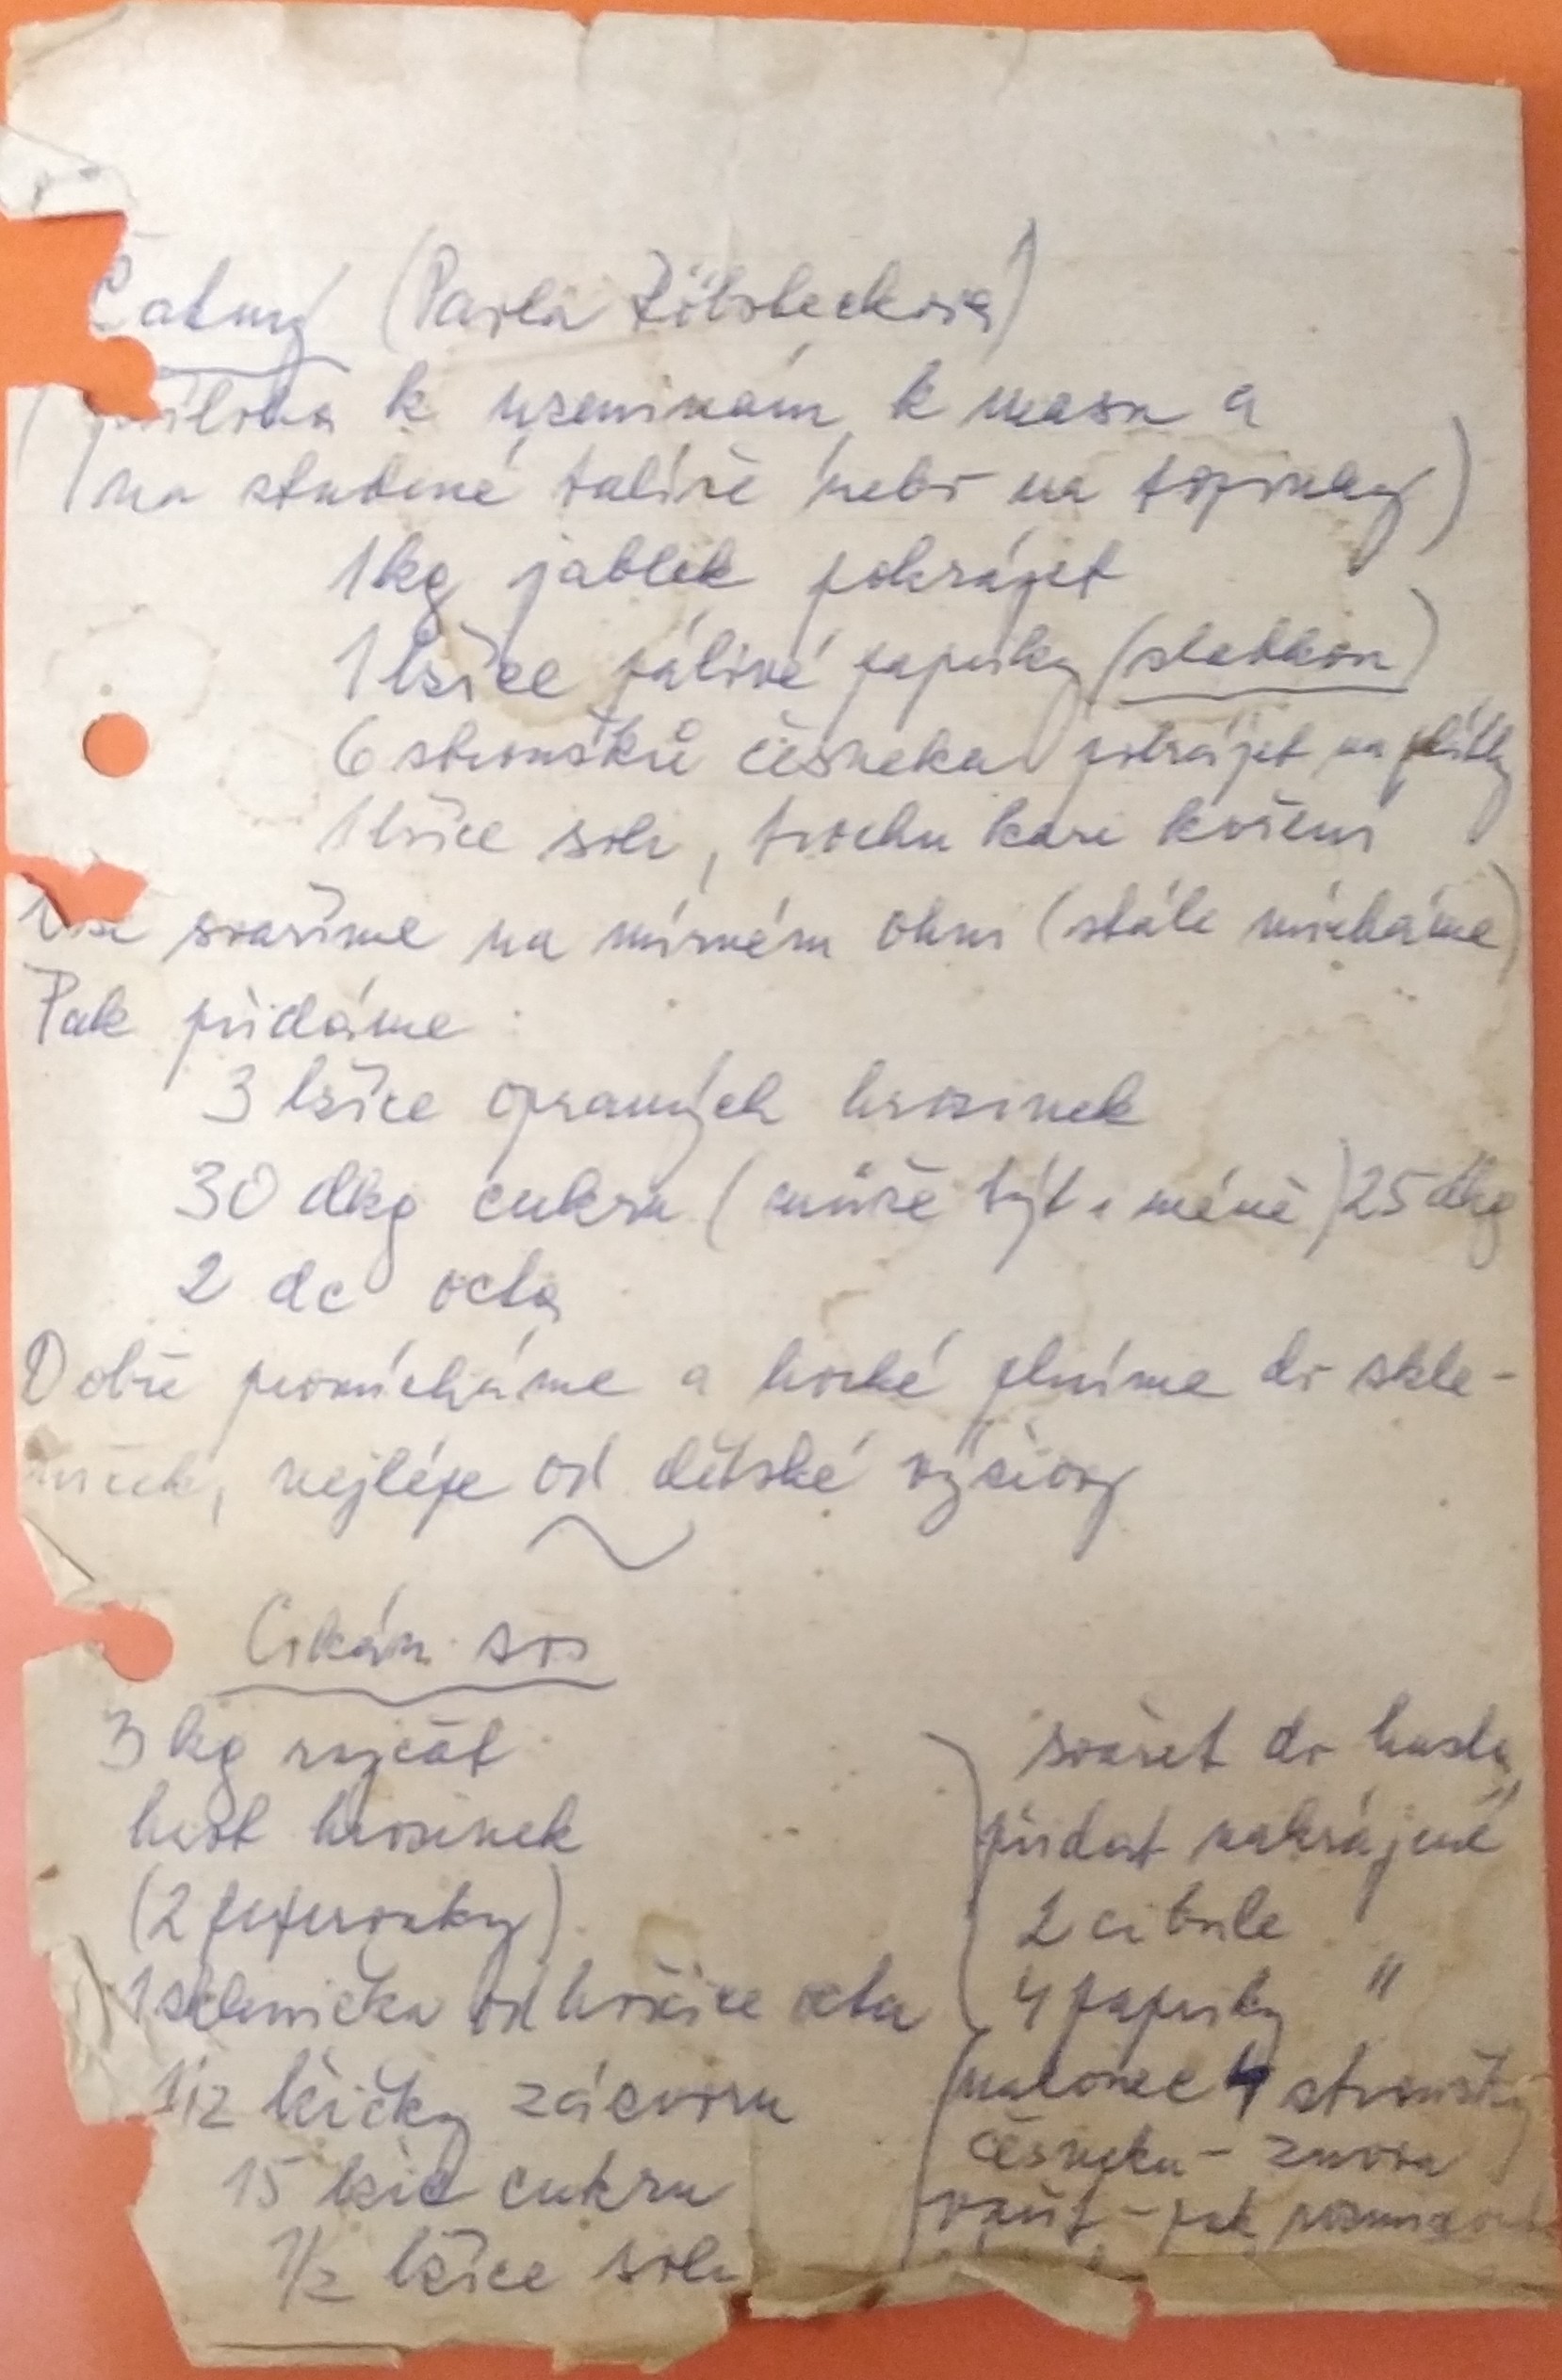 Čatny (Pavla
příloha k uzeninám, k masu a
na studené talíře nebo na topinky)
1 kg jablek pokrájet
1 lžíce pálivé papriky (sladkou)
6 stroužků česneka pokrájet na plátky
1 lžíce soli, trochu kari koření
Vše svaříme na mírném ohni (stále mícháme)
Pak přidáme
3 lžíce opraných hrozinek
30 dkg cukru (může být i méně) 25 dkg
2 dc octa
Dobře promícháme a horké plníme do skle-
niček, nejlépe od dětské výživy
Cikán. sos
3 kg rajčat
hrst hrozinek
(2 feferonky)
1 sklenička od hořčice octa
1/2 lžičky zázvoru
15 lžic cukru
1/2 lžíce soli
svařit do husta,
přidat nakrájené
2 cibule "
4 papriky "
nakonec 4 stroužky
česneku - znova
vařit - pak